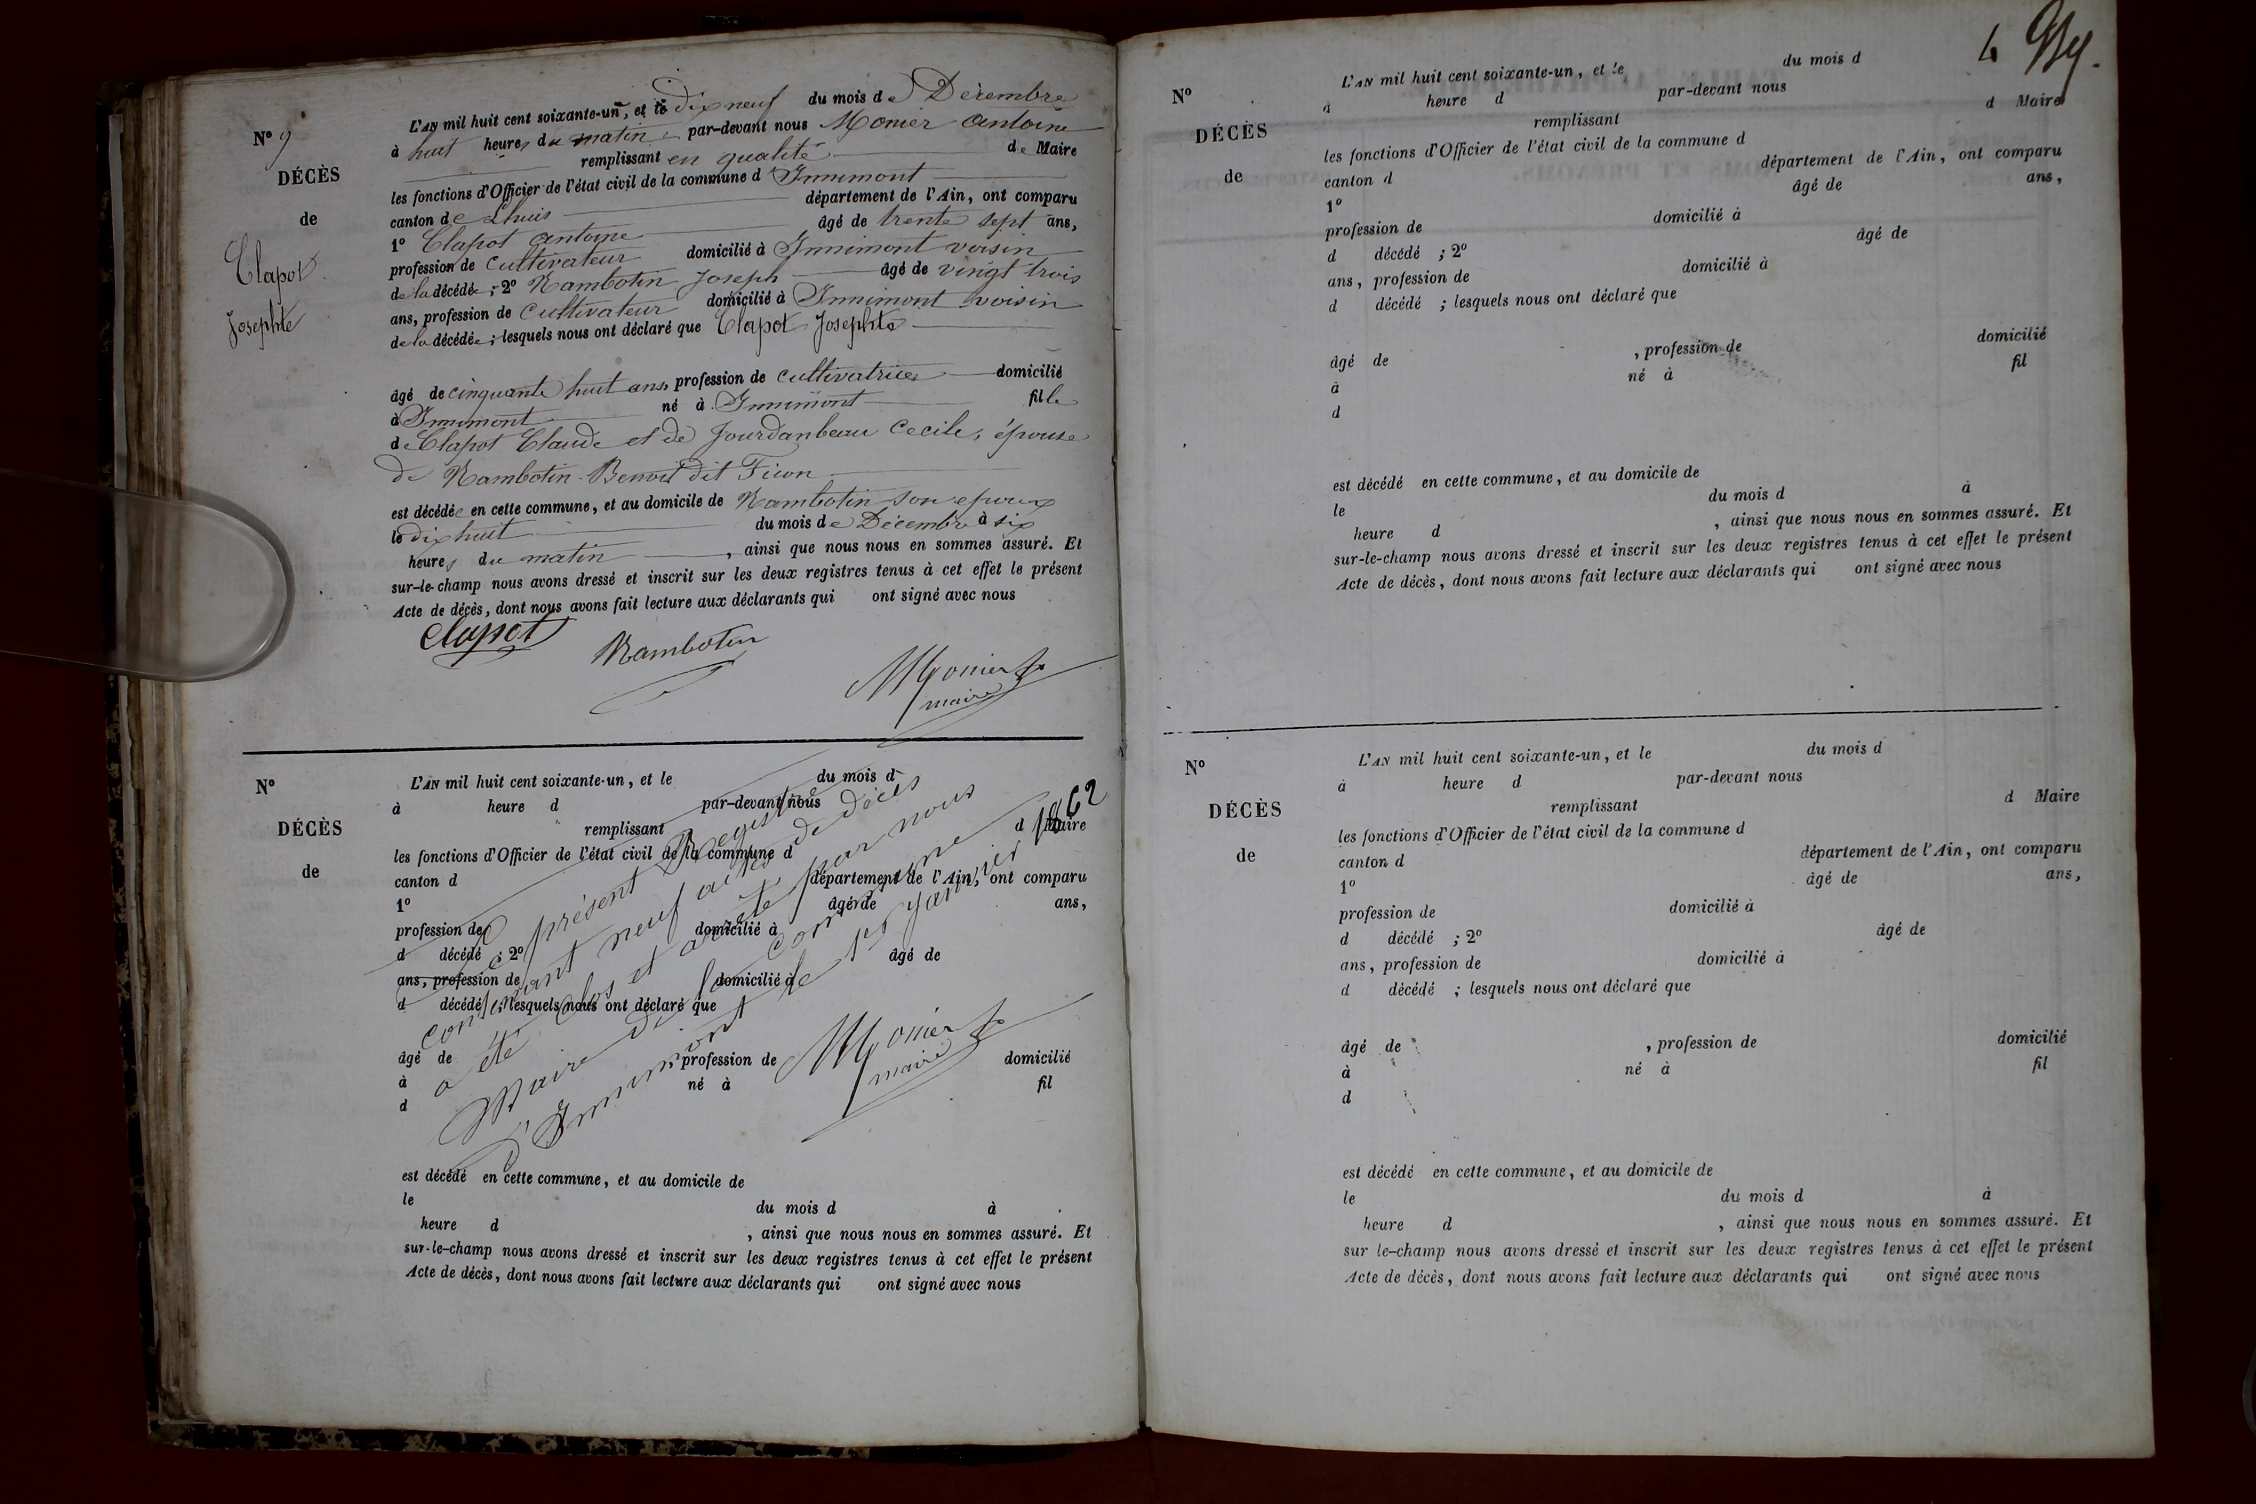 N° 9
DÉCÈS
de
Clapot
Josephte
L'AN mil huit cent soixante-un, et le dix neuf du mois de Décembre
à huit heures du matin par-devant nous Monier Antoine
remplissant en qualité de Maire
les fonctions d'Officier de l'état civil de la commune d'Innimont
canton de Lhuis département de l'Ain, ont comparu
1° Clapot Antoine âgé de trente sept ans,
profession de cultivateur domicilié à Innimont voisin
de la décédée ; 2° Rambotin Joseph âgé de vingt trois
ans, profession de cultivateur domicilié à Innimont voisin
de la décédée ; lesquels nous ont déclaré que Clapot Josephte
âgé de cinquante huit ans, profession de cultivatrice domicilié
à Innimont né à Innimont fille
de Clapot Claude et de Jourdanbeau Cecile, épouse
de Rambotin Benoit dit
est décédée en cette commune, et au domicile de Rambotin son epoux
le dix huit du mois de Décembre à six
heures du matin , ainsi que nous nous en sommes assuré. Et
sur-le-champ nous avons dressé et inscrit sur les deux registres tenus à cet effet le présent
Acte de décès, dont nous avons fait lecture aux déclarants qui ont signé avec nous
Clapot
Rambotin
Monier
maire
N°
DÉCÈS
de
L'AN mil huit cent soixante-un, et le du mois d
à heure d par-devant nous
remplissant d Maire
les fonctions d'Officier de l'état civil de la commune d
canton d département de l'Ain, ont comparu
1° âgé de ans,
profession de domicilié à
d décédé ; 2° âgé de
ans, profession de domicilié à
d décédé ; lesquels nous ont déclaré que
âgé de , profession de domicilié
à né à fil
d
est décédé en cette commune, et au domicile de
le du mois d à
heure d , ainsi que nous nous en sommes assuré. Et
sur-le-champ nous avons dressé et inscrit sur les deux registres tenus à cet effet le présent
Acte de décès, dont nous avons fait lecture aux déclarants qui ont signé avec nous
Le présent Registre
contenant neuf actes de décès
a été clos et arrêté par nous
Maire de la commune
d'Innimont le 1er Janvier 1862
Monier
maire
4
N°
DÉCÈS
de
L'AN mil huit cent soixante-un, et le du mois d
à heure d par-devant nous
remplissant d Maire
les fonctions d'Officier de l'état civil de la commune d
canton d département de l'Ain, ont comparu
1° âgé de ans,
profession de domicilié à
d décédé ; 2° âgé de
ans, profession de domicilié à
d décédé ; lesquels nous ont déclaré que
âgé de , profession de domicilié
à né à fil
d
est décédé en cette commune, et au domicile de
le du mois d à
heure d , ainsi que nous nous en sommes assuré. Et
sur-le-champ nous avons dressé et inscrit sur les deux registres tenus à cet effet le présent
Acte de décès, dont nous avons fait lecture aux déclarants qui ont signé avec nous
N°
DÉCÈS
de
L'AN mil huit cent soixante-un, et le du mois d
à heure d par-devant nous
remplissant d Maire
les fonctions d'Officier de l'état civil de la commune d
canton d département de l'Ain, ont comparu
1° âgé de ans,
profession de domicilié à
d décédé ; 2° âgé de
ans, profession de domicilié à
d décédé ; lesquels nous ont déclaré que
âgé de , profession de domicilié
à né à fil
d
est décédé en cette commune, et au domicile de
le du mois d à
heure d , ainsi que nous nous en sommes assuré. Et
sur le-champ nous avons dressé et inscrit sur les deux registres tenus à cet effet le présent
Acte de décès, dont nous avons fait lecture aux déclarants qui ont signé avec nous